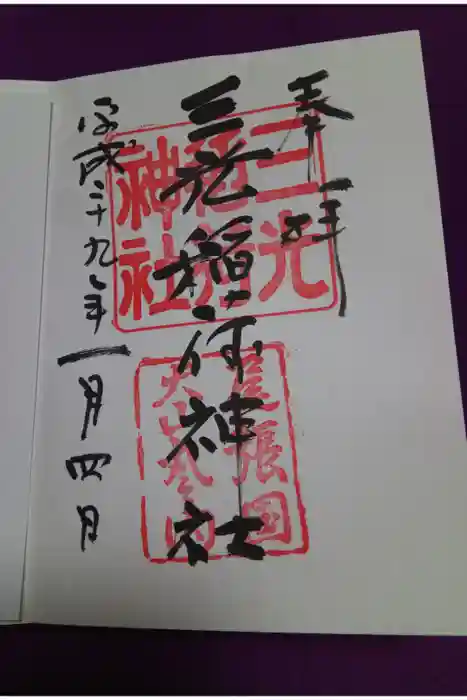 奉拝
三光稲荷神社
平成二十九年一月四日
三光
稲荷
神社
尾張国
犬山城内